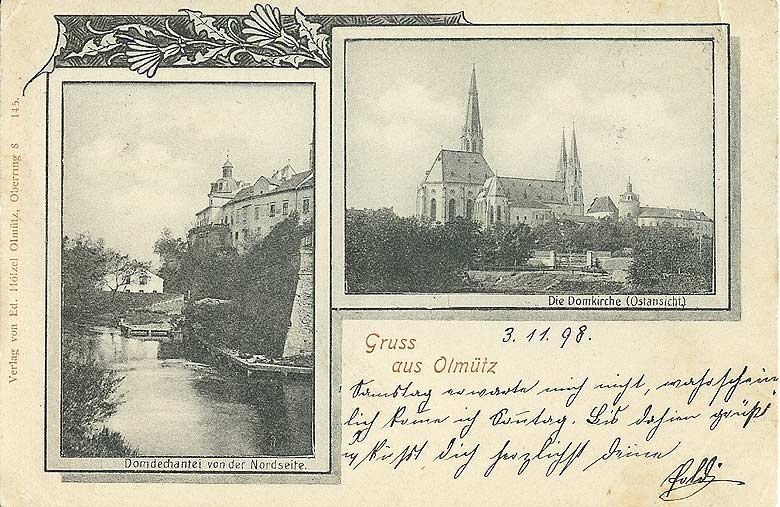 Verlag von Ed. Hölzel Olmütz, Oberring 8   145.
Die Domkirche (Ostansicht.)
Domdechantei von der Nordseite.
Gruss
aus Olmütz
3. 11. 98.
Samstag erwarte mich nicht, wahrschein
lich kome ich Sonntag. Bis dahien grüßt
küßt dich herzlichst deine
Poldi